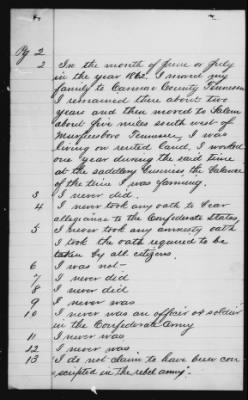 Pg 2
2 In the month of June or July
in the year 1862. I moved my
family to Cannon County Tennessee
I remained there about two
years and then moved to Salem
about five miles south west of
Murfeesboro Tennessee, I was
living on rented land, I worked
one year during the said time
at the saddlery business the balance
of the time I was farming.
3 I never did.
4 I never took any oath to bear
allegiance to the Confederate States
5 I never took any amnesty oath
I took the oath required to be
taken by all citizens.
6 I was not—
7 I never did
8 I never did
9 I never was
10 I never was an officer or soldier
in the Confederate Army
11 I never was
12 I never was
13 I do not claim to have been con
scripted in the rebel army.